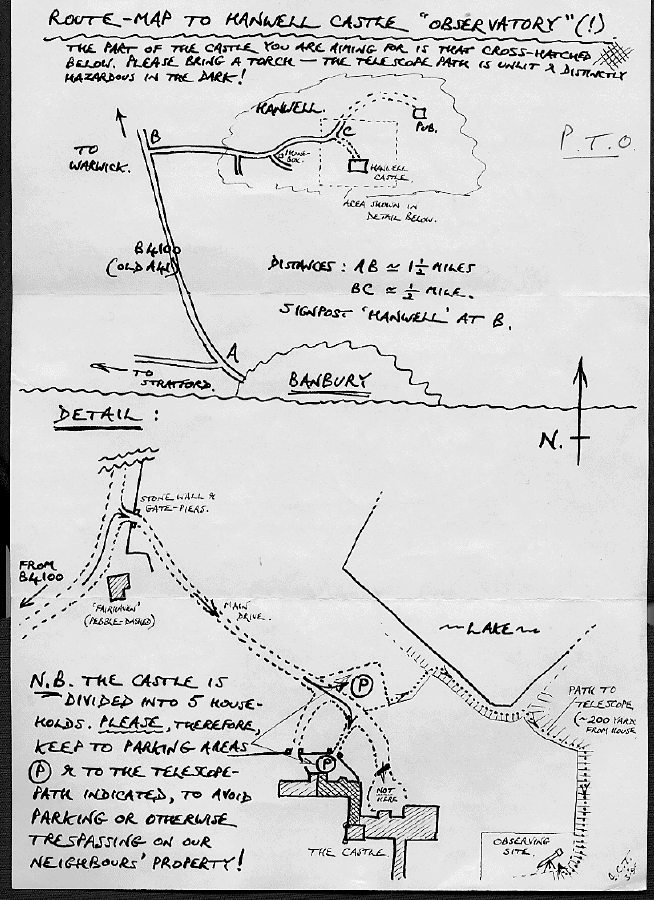 ROUTE-MAP TO HANWELL CASTLE "OBSERVATORY"(!)
THE PART OF THE CASTLE YOU ARE AIMING FOR IS THAT CROSS-HATCHED
BELOW. PLEASE BRING A TORCH — THE TELESCOPE PATH IS UNLIT & DISTINCTLY
HAZARDOUS IN THE DARK!
HANWELL.
PUB.
P.T.O.
B
C
TO
WARWICK.
PHONE-
BOX.
HANWELL
CASTLE.
AREA SHOWN IN
DETAIL BELOW.
B4100
(OLD A41)
DISTANCES: AB ≃ 1½ MILES
BC ≃ ½ MILE.
SIGNPOST 'HANWELL' AT B.
A
TO
STRATFORD.
BANBURY
DETAIL:
N.
STONE WALL &
GATE-PIERS.
FROM
B4100
'FAIRHAVEN'
(PEBBLE-DASHED)
MAIN
DRIVE.
~LAKE~
N.B. THE CASTLE IS
DIVIDED INTO 5 HOUSE-
HOLDS. PLEASE, THEREFORE,
KEEP TO PARKING AREAS
(P) & TO THE TELESCOPE-
PATH INDICATED, TO AVOID
PARKING OR OTHERWISE
TRESPASSING ON OUR
NEIGHBOURS' PROPERTY!
P
P
NOT
HERE
PATH TO
TELESCOPE
(~200 YARDS
FROM HOUSE
THE CASTLE.
OBSERVING
SITE.